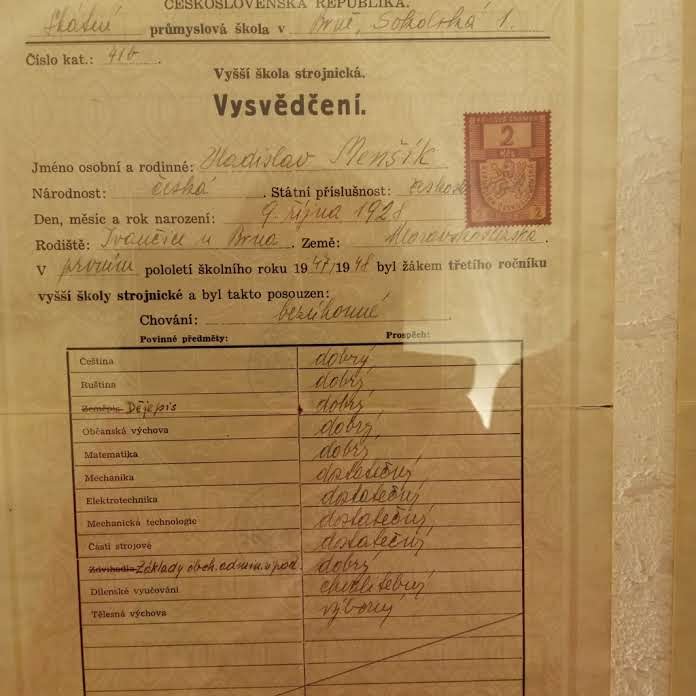 ČESKOSLOVENSKÁ REPUBLIKA.
Státní průmyslová škola v Brně, Sokolská 1.
Číslo kat.: 416.
Vyšší škola strojnická.
Vysvědčení.
2
Kčs
2 2
Jméno osobní a rodinné: Vladislav Menšík
Národnost: česká. Státní příslušnost:
Den, měsíc a rok narození: 9. října 1928
Rodiště: Ivančice u Brna. Země: Moravskoslezská.
V prvním pololetí školního roku 1947/1948 byl žákem třetího ročníku
vyšší školy strojnické a byl takto posouzen:
Chování: bezúhonné
Povinné předměty: Prospěch:
Čeština dobrý
Ruština dobrý
Zeměpis Dějepis dobrý
Občanská výchova dobrý
Matematika dobrý
Mechanika dostatečný
Elektrotechnika dostatečný
Mechanická technologie dostatečný
Části strojové dostatečný
Zdvihadla Základy obch. admin. v pod. dobrý
Dílenské vyučování chvalitebný
Tělesná výchova výborný